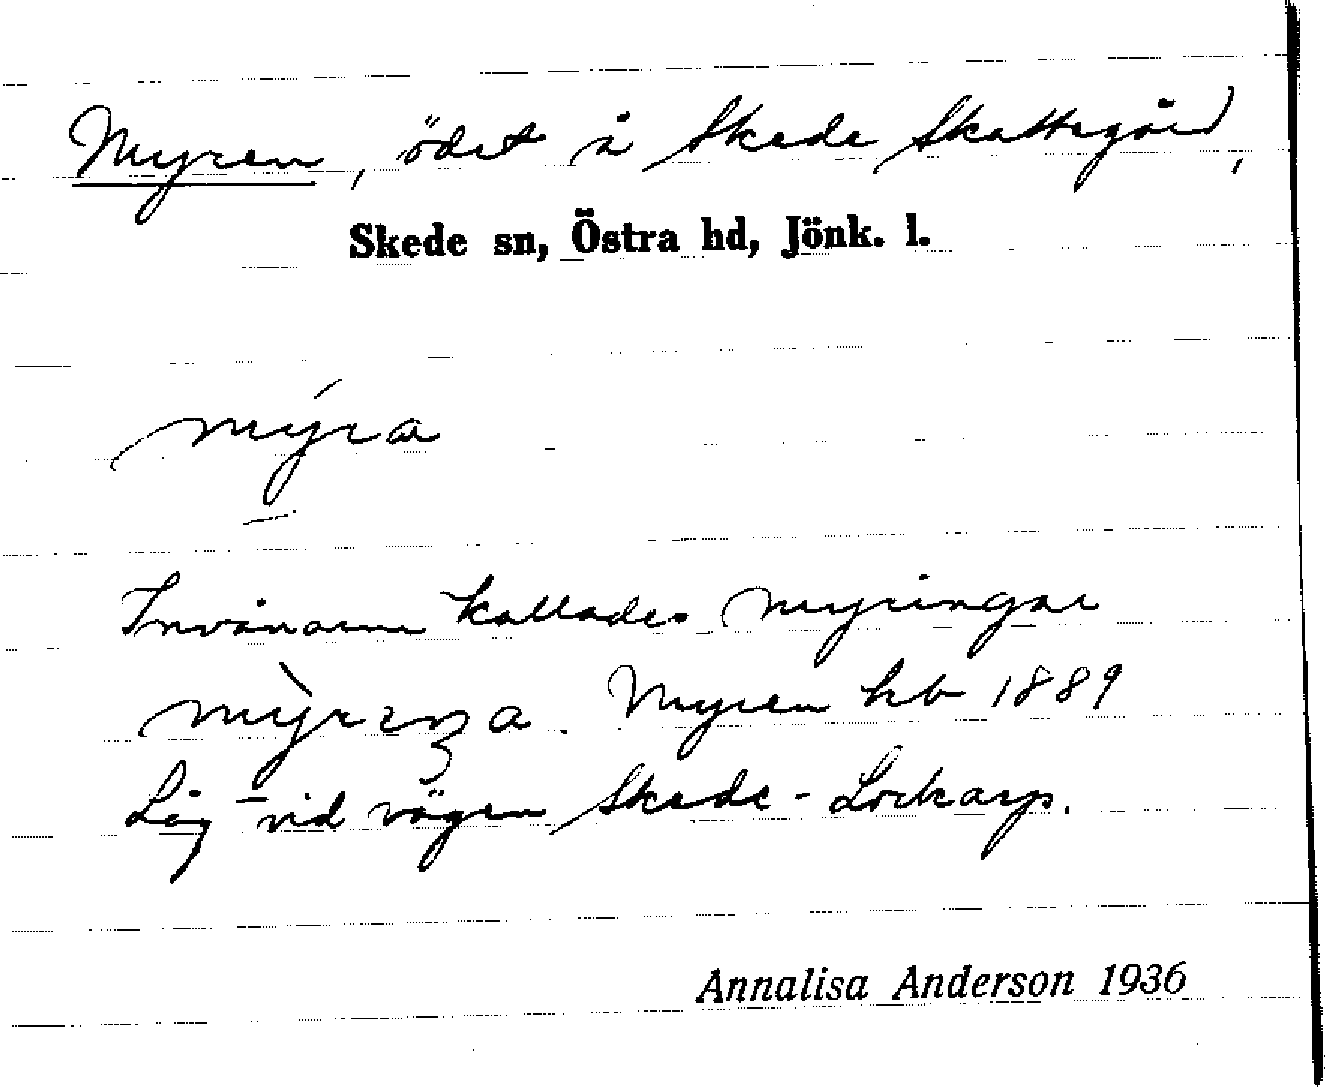 Myren, ödet å Skede Skattegård,
Skede sn, Östra hd, Jönk. l.
mýra
Invånarna kallades myringar
mỳrɪŋa. Myren hb 1889
Låg vid vägen Skede - Lockarp.
Annalisa Anderson 1936